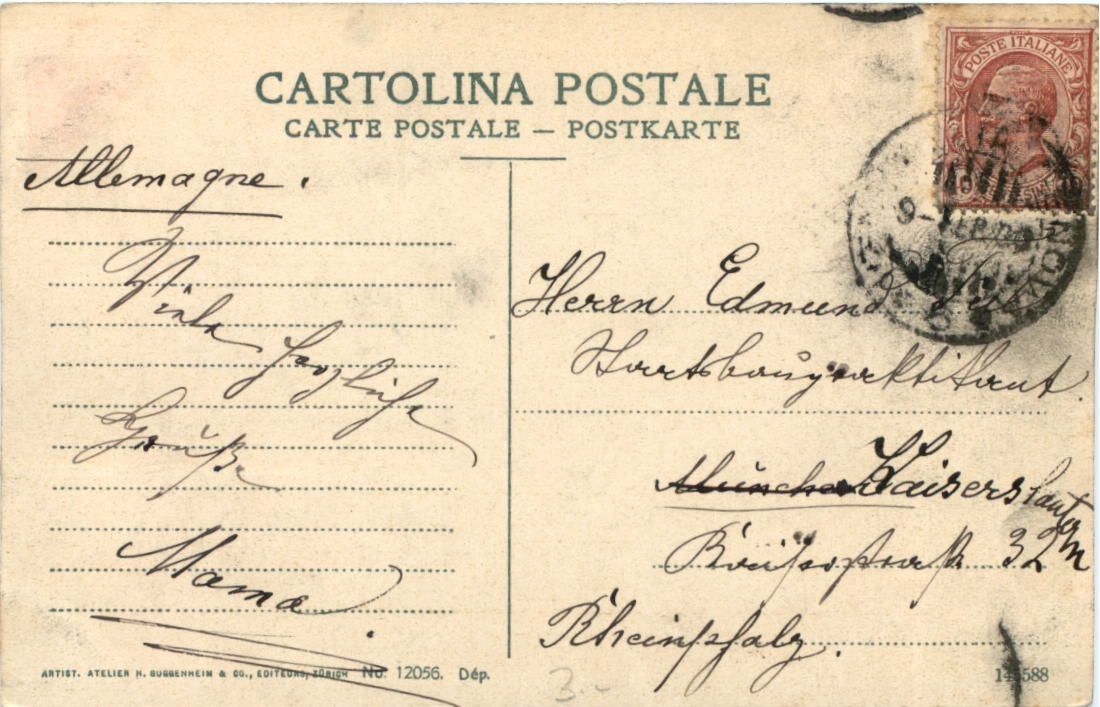 CARTOLINA POSTALE
CARTE POSTALE — POSTKARTE
POSTE ITALIANE
Allemagne.
Viele
herzliche
Grüße
Mama.
Herrn Edmund
Staatsbaupraktikant.
München Kaiserslautern
32
Rheinpfalz.
ARTIST. ATELIER H. GUGGENHEIM & CO., EDITEURS, ZÜRICH No. 12056. Dép.
3.-